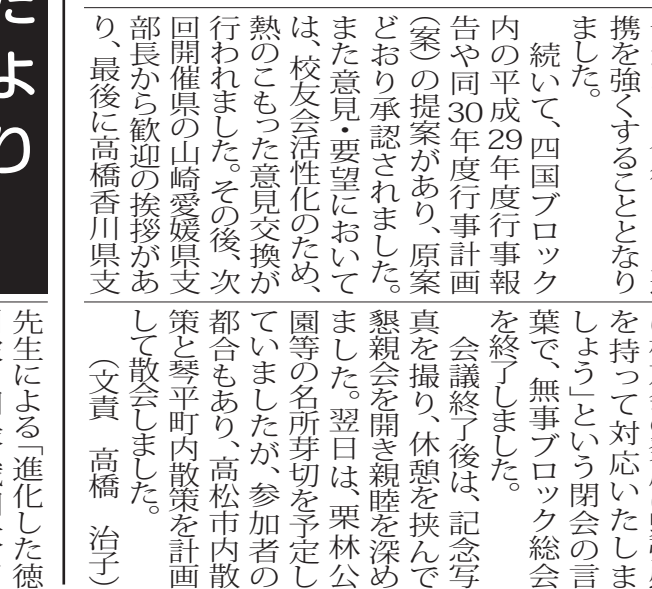 携を強くすることとなり
ました。
　続いて、四国ブロック
内の平成29年度行事報
告や同30年度行事計画
（案）の提案があり、原案
どおり承認されました。
また意見・要望において
は、校友会活性化のため、
熱のこもった意見交換が
行われました。その後、次
回開催県の山崎愛媛県支
部長から歓迎の挨拶があ
り、最後に高橋香川県支
を持って対応いたしま
しょう」という閉会の言
葉で、無事ブロック総会
を終了しました。
　会議終了後は、記念写
真を撮り、休憩を挟んで
懇親会を開き親睦を深め
ました。翌日は、栗林公
園等の名所芽切を予定し
ていましたが、参加者の
都合もあり、高松市内散
策と琴平町内散策を計画
して散会しました。
（文責　高橋　治子）
より
先生による「進化した徳